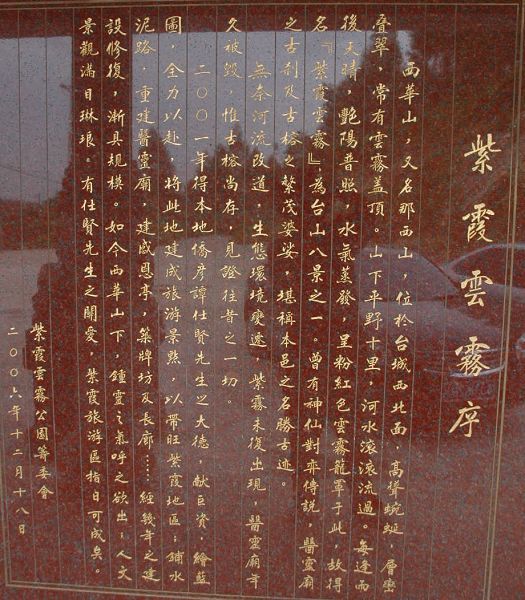 紫霞雲霧序
西華山，又名那西山，位於台城西北面，高聳蜿蜒，層巒
疊翠，常有雲霧蓋頂。山下平野十里，河水滾滾流過。每逢雨
後天晴，艷陽普照，水氣蒸發，呈粉紅色雲霧籠罩于此，故得
名『紫霞雲霧』，為台山八景之一。曾有神仙對弈傳說，醫靈廟
之古刹及古榕之繁茂婆娑，堪稱本邑之名勝古迹。
無奈河流改道，生態環境變遷，紫霧未復出現，醫靈廟年
久被毀，惟古榕尚存，見證往昔之一切。
二〇〇一年得本地僑彥譚仕賢先生之大德，獻巨資，繪藍
圖，全力以赴，將此地建成旅游景點，以帶旺紫霞地區；鋪水
泥路，重建醫靈廟，建感恩亭，築牌坊及長廊……經幾年之建
設修復，漸具規模。如今西華山下，鍾靈之氣呼之欲出；人文
景觀滿目琳琅。有仕賢先生之關愛，紫霞旅游區指日可成矣。
紫霞雲霧公園籌委會
二〇〇六年十二月十八日